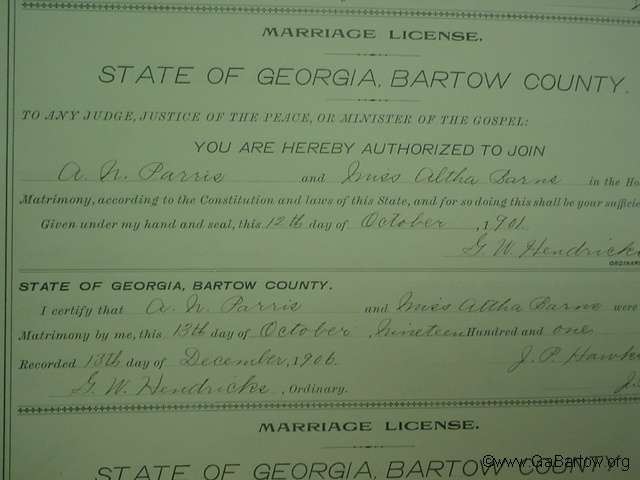 MARRIAGE LICENSE.
STATE OF GEORGIA, BARTOW COUNTY.
TO ANY JUDGE, JUSTICE OF THE PEACE, OR MINISTER OF THE GOSPEL:
YOU ARE HEREBY AUTHORIZED TO JOIN
A. N. Parris and Miss Altha Barns in the Ho
Matrimony, according to the Constitution and laws of this State, and for so doing this shall be your sufficie
Given under my hand and seal, this 12th day of October, 1901
G. W. Hendricks
ORDINAR
STATE OF GEORGIA, BARTOW COUNTY.
I certify that A. N. Parris and Miss Altha Barns were
Matrimony by me, this 13th day of October, Nineteen Hundred and one
Recorded 13th day of December, 1906. J. P. Hawk
G. W. Hendricks, Ordinary. J.
MARRIAGE LICENSE.
STATE OF GEORGIA, BARTOW COUNTY
©www.GaBartow.org